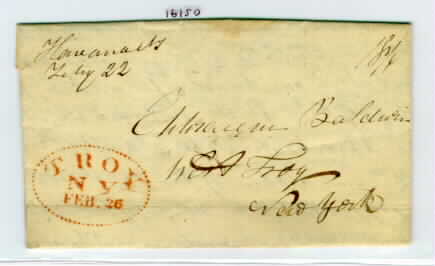 18150
Feby 22
18¾
Baldwin
West Troy
New York
TROY
NY
FEB. 26